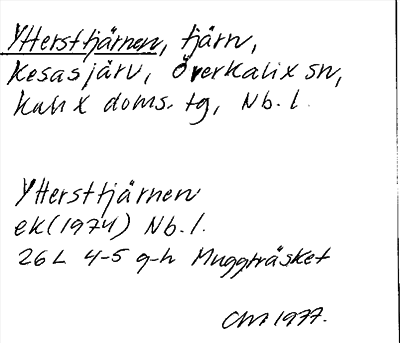 Yttersttjärnen, tjärn,
Kesasjärv, Överkalix sn,
Kalix doms. tg, Nb. l.
Yttersttjärnen
ek (1974) Nb. l.
26 L 4-5 g-h Muggträsket
1977.